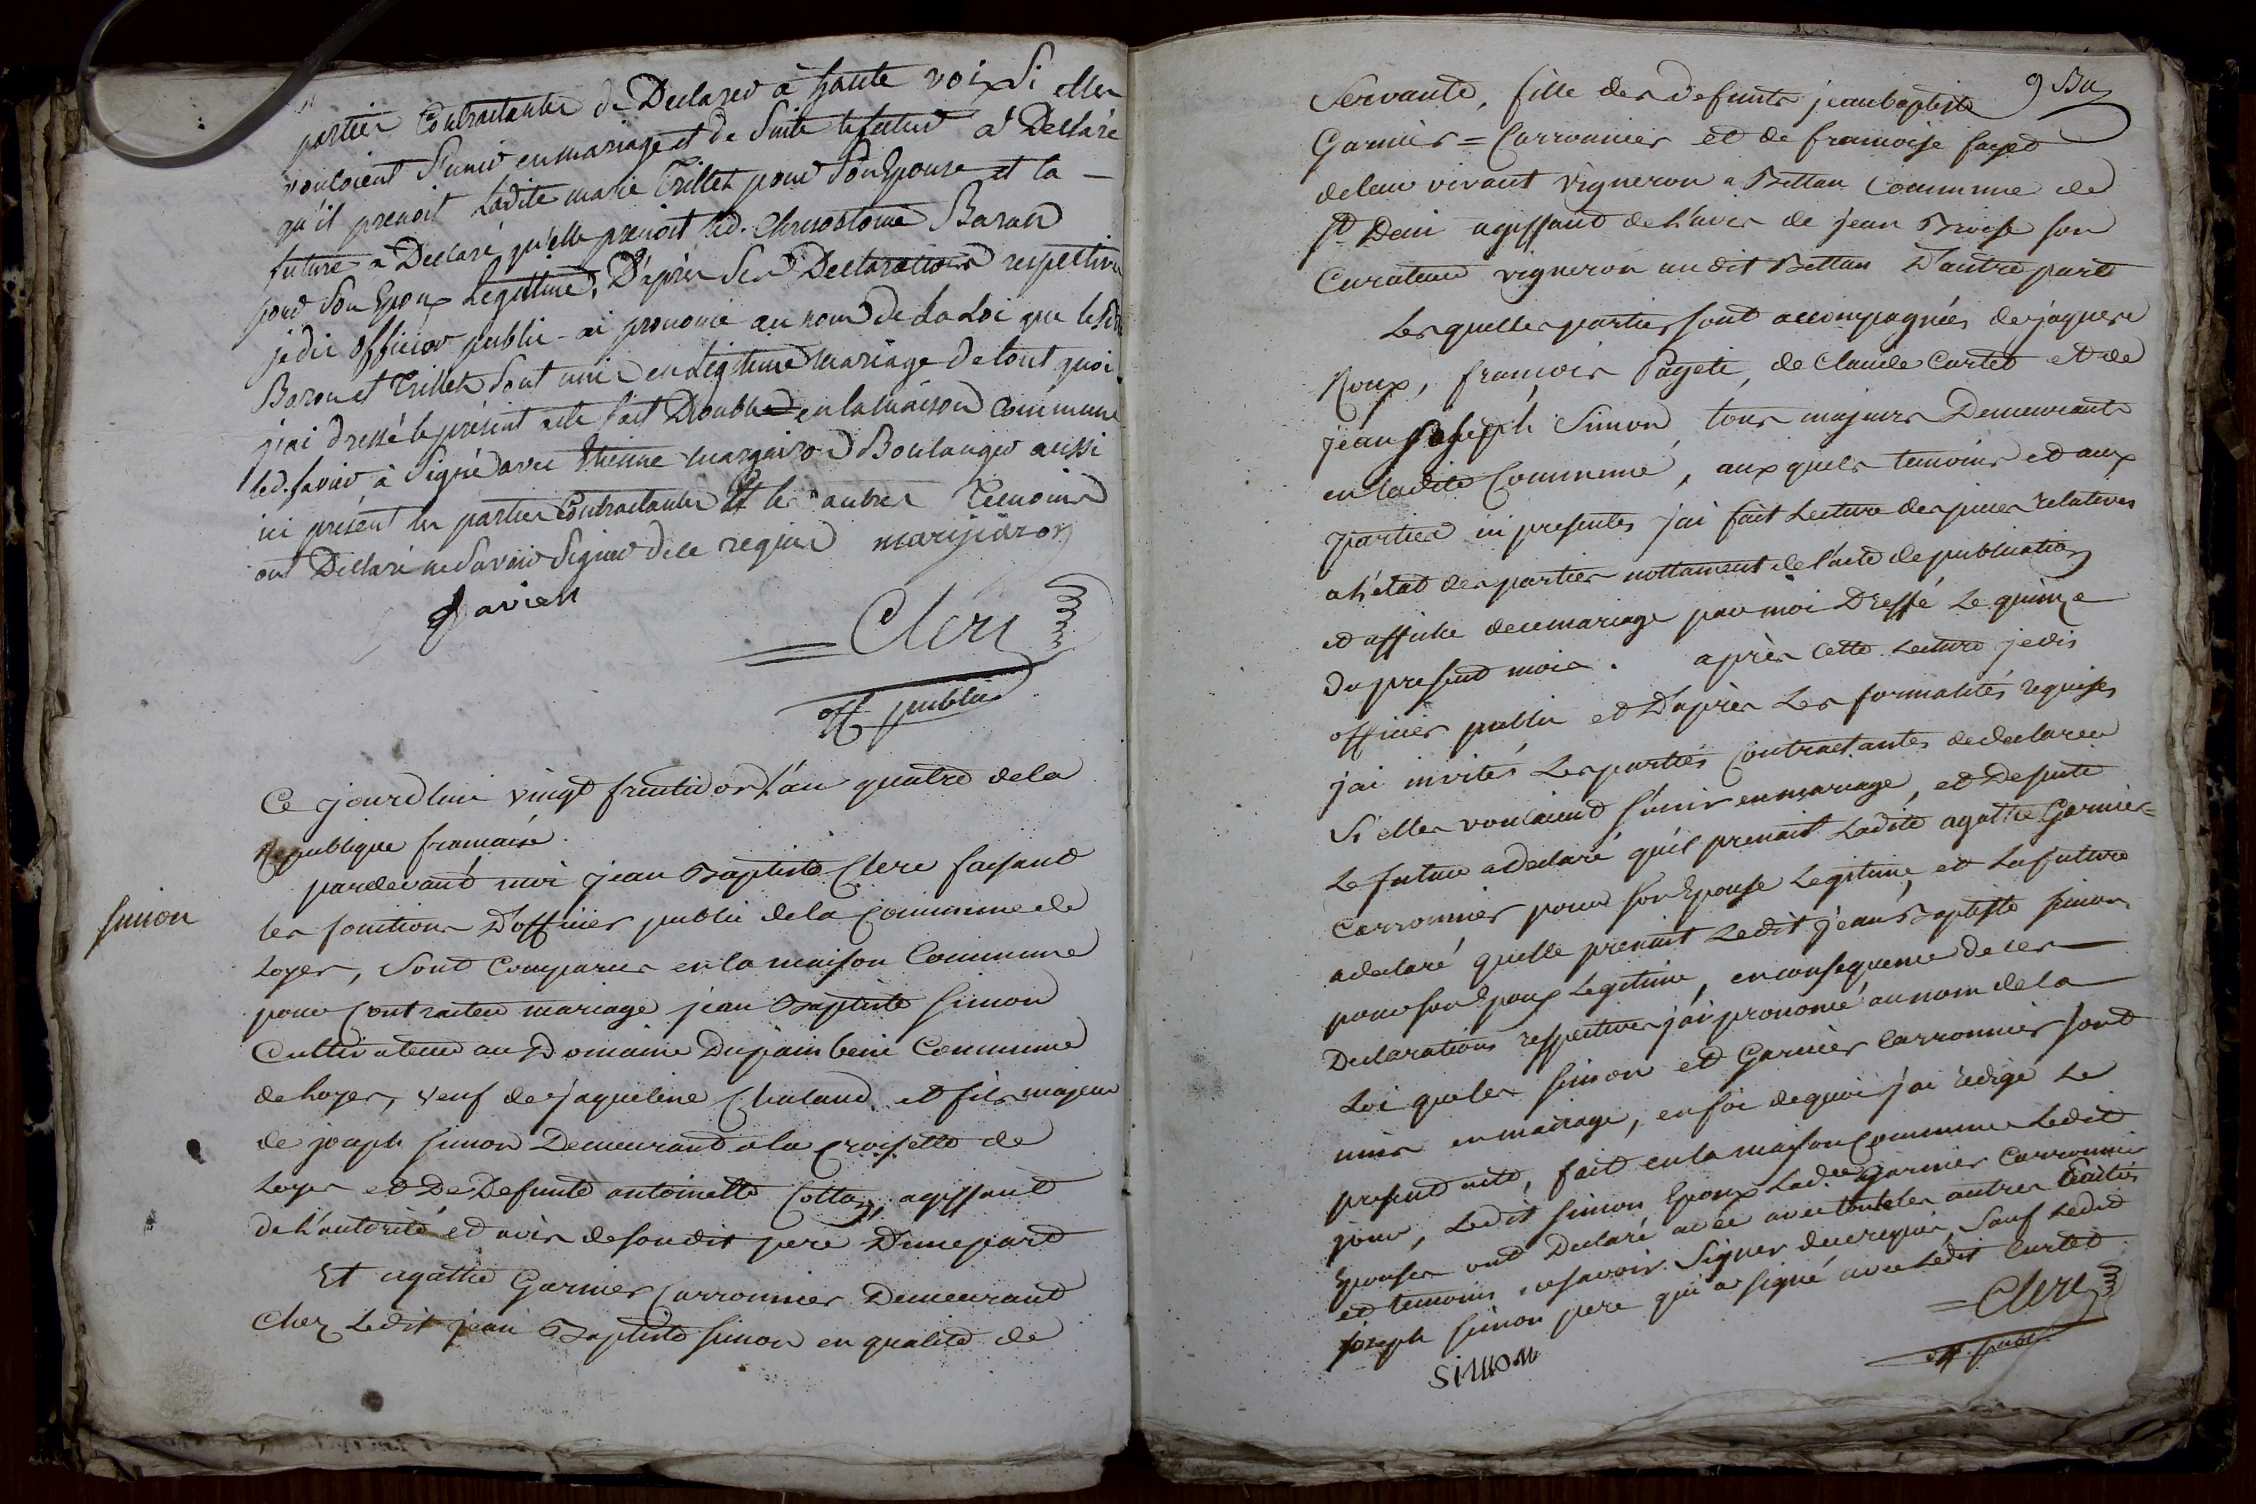 parties Contractantes de Declarer à haute voix Si elles
vouloient S'unir en mariage et de Suite le futur a Declaré
qu'il prenoit Ladite marie Trillet pour Son Epouse et la —
future a Declaré qu'elle prenoit led. Chrisostome Baron
pour Son Epoux Legitime, D'après Ses Declarations respectives
je dit officier public ai prononcé au nom de La Loi que lesd.
Baron et Trillet Sont unis en Legitime mariage de tout quoi
j'ai dressé le présent acte fait Double en la maison Commune
led. favier à Signé avec Etienne marjairon Boulanger aussi
ici présent les parties Contractantes et les autres Temoins
ont Déclaré ne Savoir Signer de ce requis marjiaron
favien
= Clerc
off public
Ce jourdhui vingt fructidor L'an quatre de la
Republique francaise.
simon
pardevant moi jean Baptiste Clerc faisant
les fonctions D'officier public de la Commune de
Loyes, Sont Comparus en la maison Commune
pour Contracter mariage jean Baptiste Simon
Cultivateur au Domaine Dupain beni Commune
de Loyes, veuf de jaqueline Chaland et fils majeur
de joseph simon Demeurant a la Croisette de
Loyes et De Defunte antoinette Cottaz, agissant
de L'autorité et avis de son dit pere D'une part
Et agathe Garnier Carronnier Demeurant
Chez Ledit jean Baptiste Simon en qualité de
9
Servante, fille des defunts jean baptiste
Garnier = Carronnier et de francoise fayet
de leur vivant vigneron a Bettan Commune de
St Deni agissant de L'avis de jean Broise son
Curateur vigneron au dit Bettan D'autre part
Les quelles parties sont accompagnées de jaques
Roux, francois Pageti, de Claude Curtet et de
jean joseph Simon, tous majeurs Demeurants
en ladite Commune, aux quels temoins et aux
parties ci presentes j'ai fait Lecture des pieces relatives
a L'état des parties nottament de l'acte de publication
et affiche de ce mariage par moi Dressé Le quinze
du present mois. après cette Lecture je dis
officier public et D'après Les formalités requises
j'ai invités Les parties Contractantes de declarer
Si elles vouloient S'unir en mariage, et De suite
Le futur a declaré qu'il prenait Ladite agathe Garnier =
Carronnier pour son Epouse Legitime, et La future
a declaré quelle prenait Ledit jean Baptiste Simon
pour son Epoux Legitime, en consequence de ces —
Declarations respectives j'ai prononcé au nom de la —
Loi que les Simon et Garnier Carronnier sont
unis en mariage, en foi de quoi j'ai redigé Le
present acte, fait en la maison Commune Ledit
jour, Ledit Simon Epoux Lad. Garnier Carronnier
Epouse ont Declaré avec tous les autres
et temoins ne savoir Signer de ce requis, Sauf Ledit
joseph Simon pere qui a signé avec Ledit Curtet
= Clerc
off. publ
SiMoN